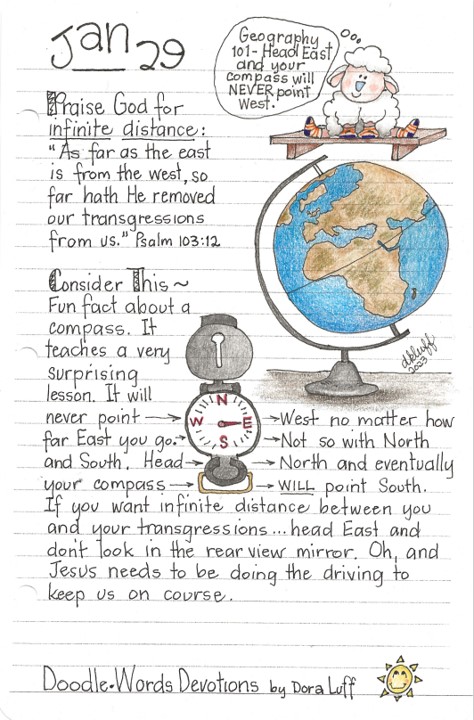 Jan 29
Geography
101- Head East
and your
compass will
NEVER point
West.
Praise God for
infinite distance:
"As far as the east
is from the west, so
far hath He removed
our transgressions
from us." Psalm 103:12
Consider This ~
Fun fact about a
compass. It
teaches a very
surprising
lesson. It will
never point → West no matter how
far East you go. → Not so with North
and South. Head → North and eventually
your compass → WILL point South.
N
W E
S
dkluff
2023
If you want infinite distance between you
and your transgressions... head East and
don't look in the rear view mirror. Oh, and
Jesus needs to be doing the driving to
keep us on course.
Doodle•Words Devotions by Dora Luff